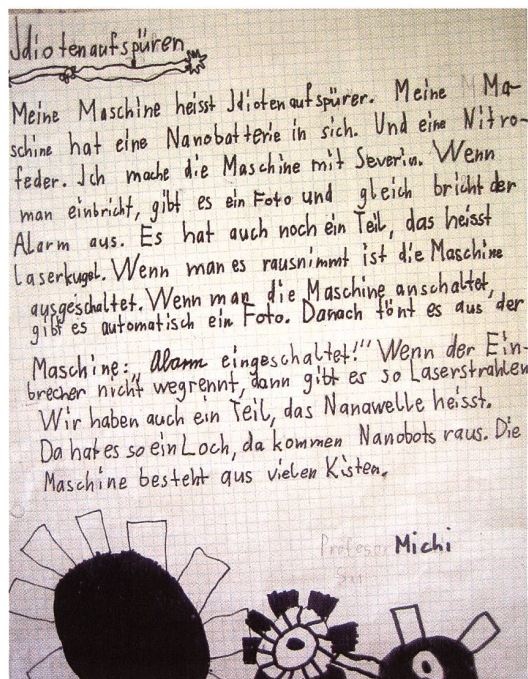 Idiotenaufspüren
Meine Maschine heisst Idiotenaufspürer. Meine M Ma-
schine hat eine Nanobatterie in sich. Und eine Nitro-
feder. Ich mache die Maschine mit Severin. Wenn
man einbricht, gibt es ein Foto und gleich bricht der
Alarm aus. Es hat auch noch ein Teil, das heisst
Laserkugel. Wenn man es rausnimmt ist die Maschine
ausgeschaltet. Wenn man die Maschine anschaltet,
gibt es automatisch ein Foto. Danach tönt es aus der
Maschine: „Alarm eingeschaltet!" Wenn der Ein-
brecher nicht wegrennt, dann gibt es so Laserstrahlen
Wir haben auch ein Teil, das Nanawelle heisst.
Da hat es so ein Loch, da kommen Nanobots raus. Die
Maschine besteht aus vielen Kisten.
Profesor Michi